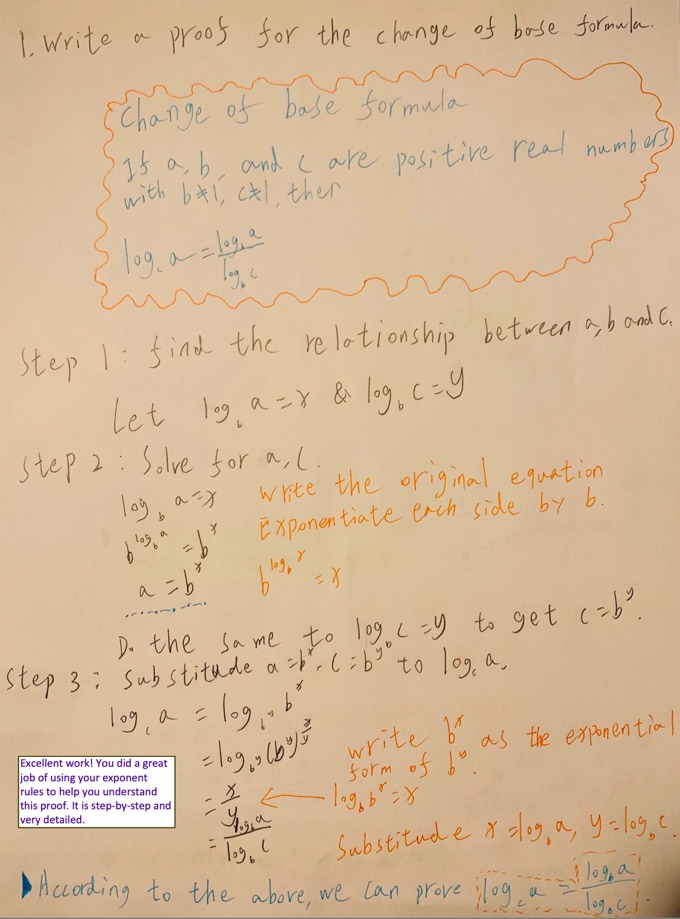 1. Write a proof for the change of base formula.
Change of base formula
If a, b, and c are positive real numbers
with b≠1, c≠1, then
log_c a = log_b a / log_b c
Step 1: find the relationship between a, b and c.
Let log_b a = x & log_b c = y
Step 2: Solve for a, c.
log_b a = x Write the original equation
b^(log_b a) = b^x Exponentiate each side by b.
a = b^x b^(log_b x) = x
Do the same to log_b c = y to get c = b^y.
Step 3: Substitude a = b^x, c = b^y to log_c a.
log_c a = log_(b^y) b^x
= log_(b^y) (b^y)^(x/y) write b^x as the exponential
form of b^y.
= x/y ← log_b b^x = x
= log_b a / log_b c Substitude x = log_b a, y = log_b c
Excellent work! You did a great
job of using your exponent
rules to help you understand
this proof. It is step-by-step and
very detailed.
According to the above, we can prove log_c a = log_b a / log_b c.